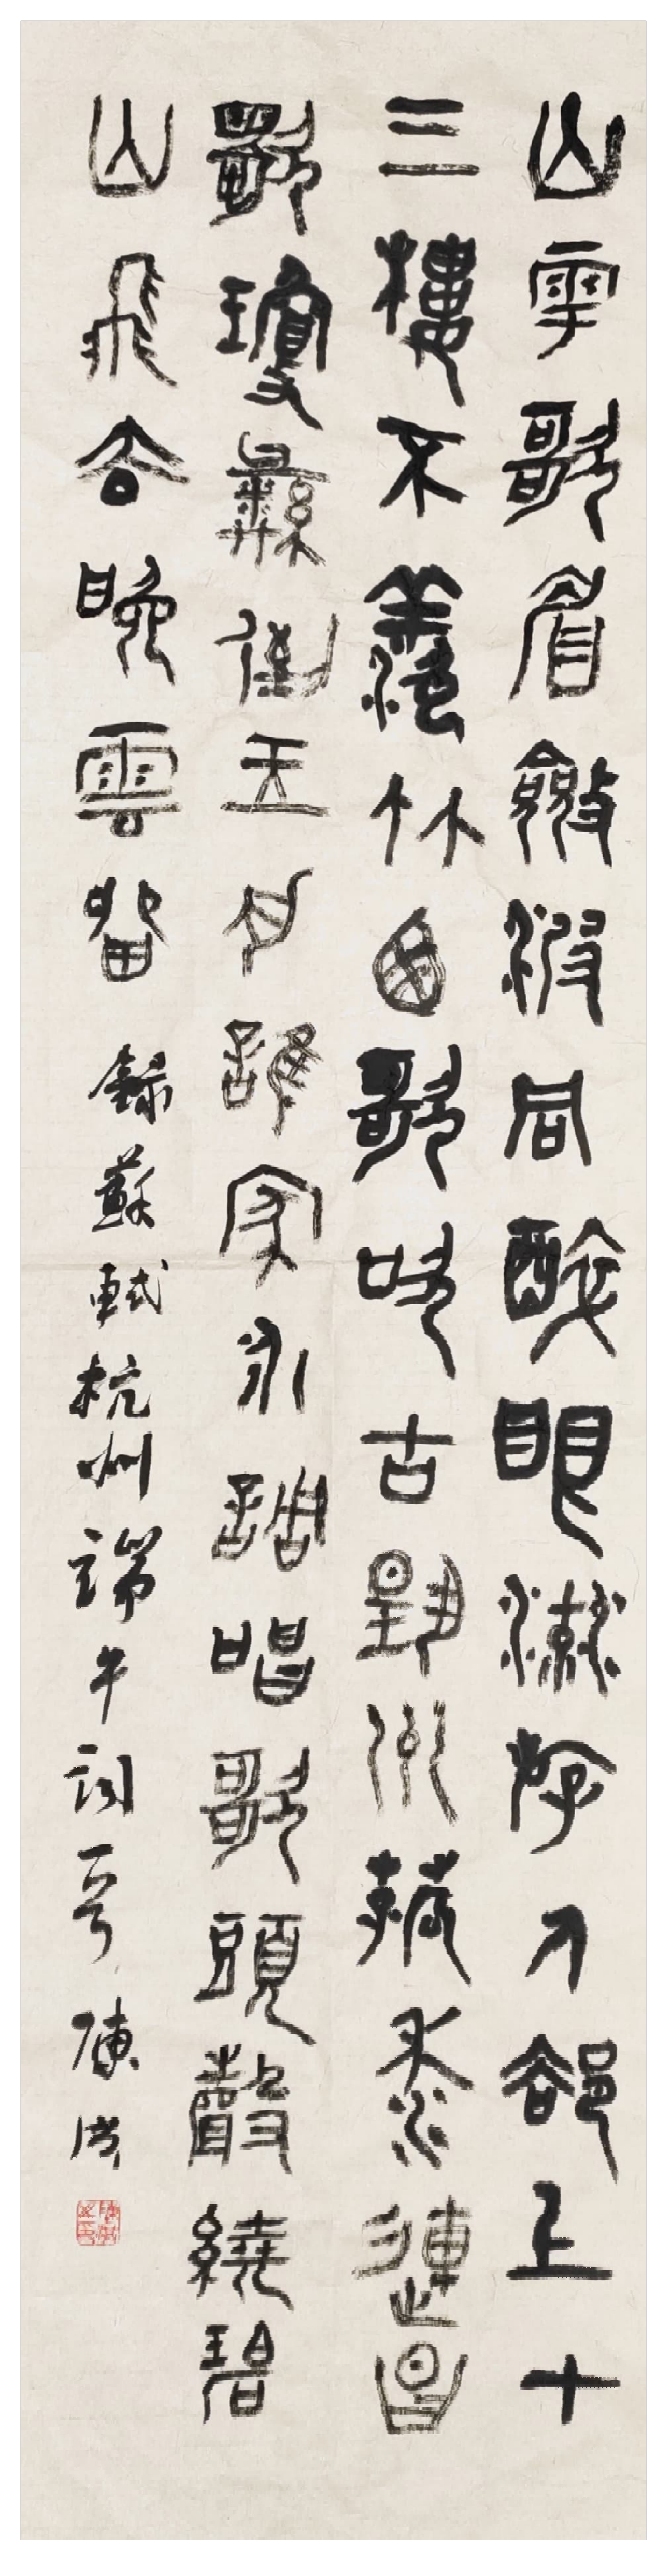 山雩歌眉斂波同醉眼流游人都上十
三樓不羨竹西歌吹古揚州菰黍連昌
歜瓊彝倒玉舟誰家水調唱歌頭聲繞碧
山飛去晚雲留 錄蘇軾杭州端午詞一首 陳